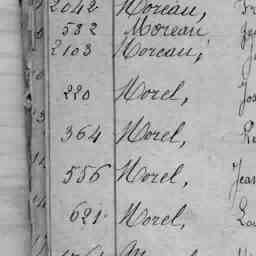 2042 Moreau,
582 Moreau
2103 Moreau,
220 Morel,
364 Morel,
556 Morel, Jean
621 Morel,